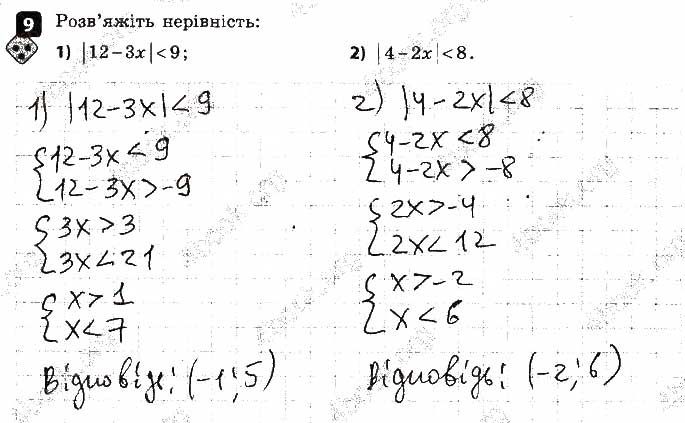 9 Розв'яжіть нерівність:
1) |12-3x|<9; 2) |4-2x|<8.
1) |12-3x|<9
{12-3x<9
{12-3x>-9
{3x>3
{3x<21
{x>1
{x<7
Відповідь: (-1; 5)
2) |4-2x|<8
{4-2x<8
{4-2x>-8
{2x>-4
{2x<12
{x>-2
{x<6
Відповідь: (-2; 6)